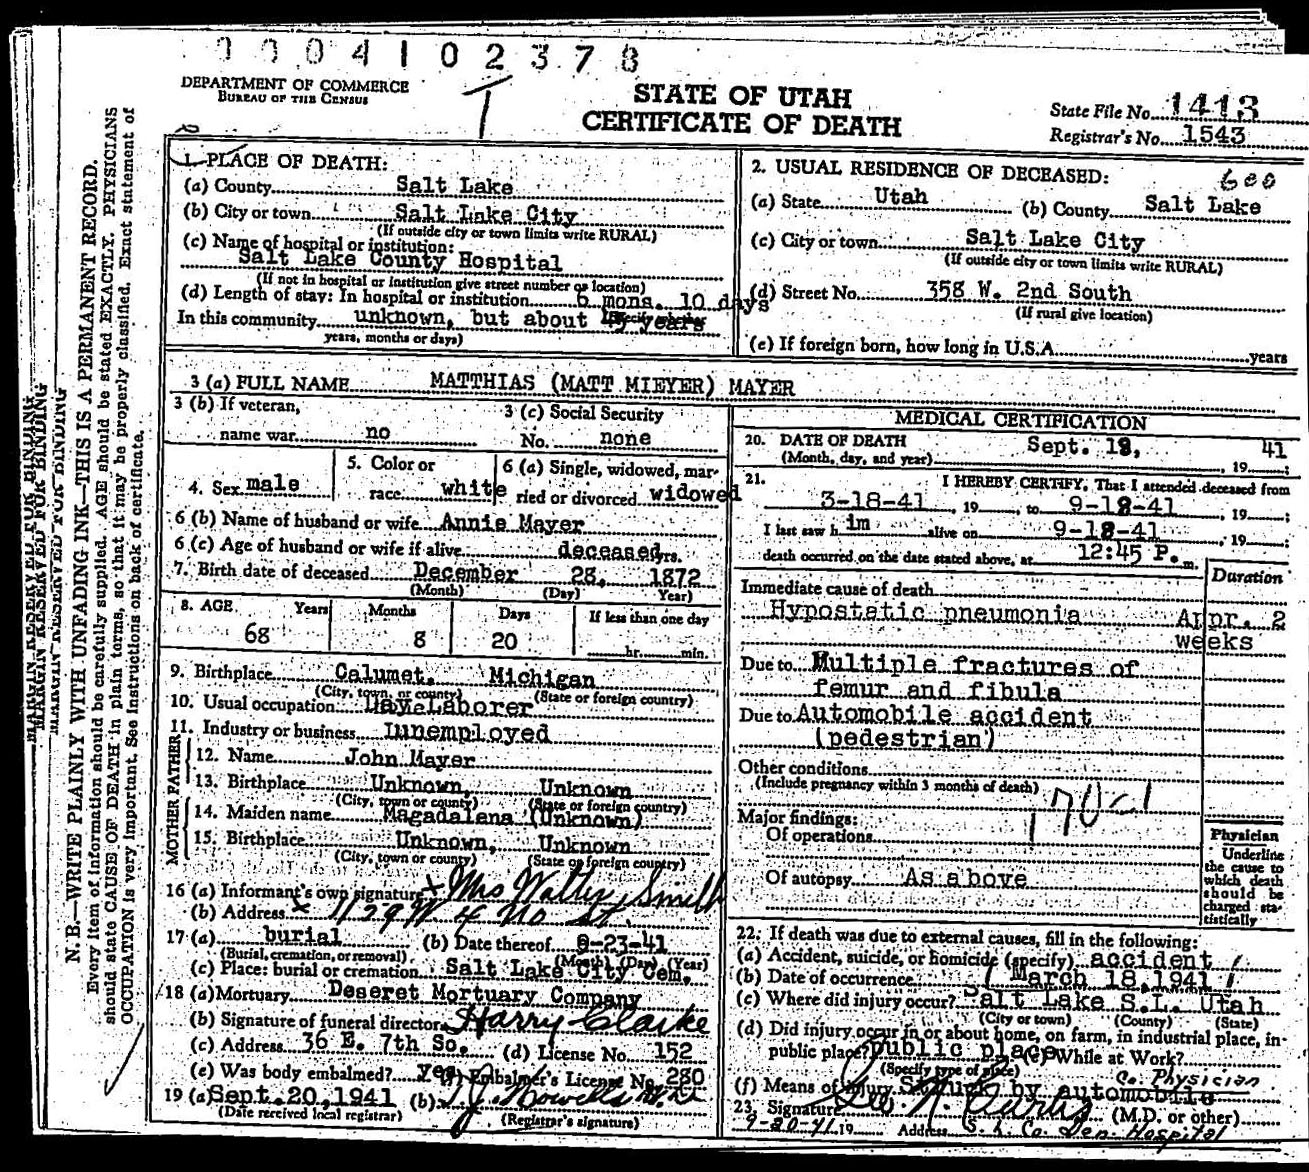 0004102378
DEPARTMENT OF COMMERCE
BUREAU OF THE CENSUS
STATE OF UTAH
CERTIFICATE OF DEATH
State File No. 1413
Registrar's No. 1543
MARGIN RESERVED FOR BINDING
N. B.—WRITE PLAINLY WITH UNFADING INK—THIS IS A PERMANENT RECORD.
Every item of information should be carefully supplied. AGE should be stated EXACTLY. PHYSICIANS
should state CAUSE OF DEATH in plain terms, so that it may be properly classified. Exact statement of
OCCUPATION is very important. See instructions on back of certificate.
1. PLACE OF DEATH:
(a) County Salt Lake
(b) City or town Salt Lake City
(If outside city or town limits write RURAL)
(c) Name of hospital or institution:
Salt Lake County Hospital
(If not in hospital or institution give street number or location)
(d) Length of stay: In hospital or institution 6 mons. 10 days
In this community unknown, but about years
years, months or days)
2. USUAL RESIDENCE OF DECEASED: 600
(a) State Utah (b) County Salt Lake
(c) City or town Salt Lake City
(If outside city or town limits write RURAL)
(d) Street No. 358 W. 2nd South
(If rural give location)
(e) If foreign born, how long in U.S.A. years
3 (a) FULL NAME MATTHIAS (MATT MIEYER) MAYER
3 (b) If veteran, name war no
3 (c) Social Security No. none
4. Sex male
5. Color or race white
6 (a) Single, widowed, married or divorced widowed
6 (b) Name of husband or wife Annie Mayer
6 (c) Age of husband or wife if alive deceased yrs.
7. Birth date of deceased December 28, 1872
(Month) (Day) (Year)
8. AGE Years Months Days If less than one day
68 8 20 hr. min.
9. Birthplace Calumet, Michigan
(City, town, or county) (State or foreign country)
10. Usual occupation Day-Laborer
11. Industry or business Iunemployed
FATHER
12. Name John Mayer
13. Birthplace Unknown, Unknown
(City, town or county) (State or foreign country)
MOTHER
14. Maiden name Magadalena (Unknown)
15. Birthplace Unknown, Unknown
(City, town or county) (State or foreign country)
16 (a) Informant's own signature x Mrs Walter Smith
(b) Address x 1129 W 4 No St.
17 (a) burial (b) Date thereof 9-23-41
(Burial, cremation, or removal) (Month) (Day) (Year)
(c) Place: burial or cremation Salt Lake City Cem.
18 (a) Mortuary Deseret Mortuary Company
(b) Signature of funeral director Harry Clarke
(c) Address 36 E. 7th So. (d) License No. 152
(e) Was body embalmed? yes (f) Embalmer's License No. 280
19 (a) Sept. 20, 1941 (b) T. J. Howells M.D.
(Date received local registrar) (Registrar's signature)
MEDICAL CERTIFICATION
20. DATE OF DEATH
(Month, day, and year) Sept. 18, 19 41
21. I HEREBY CERTIFY, That I attended deceased from
3-18-41, 19 , to 9-18-41, 19 ;
I last saw h im alive on 9-18-41, 19 ;
death occurred on the date stated above, at 12:45 P. m.
Duration
Immediate cause of death
Hypostatic pneumonia Appr. 2
weeks
Due to Multiple fractures of
femur and fibula
Due to Automobile accident
(pedestrian)
Other conditions
(Include pregnancy within 3 months of death)
170c1
Major findings:
Of operations
Of autopsy As above
Physician
Underline
the cause to
which death
should be
charged sta-
tistically
22. If death was due to external causes, fill in the following:
(a) Accident, suicide, or homicide (specify) accident
(b) Date of occurrence March 18, 1941
(c) Where did injury occur? Salt Lake S.L. Utah
(City or town) (County) (State)
(d) Did injury occur in or about home, on farm, in industrial place, in
public place? public place (e) While at Work?
(Specify type of place)
(f) Means of injury Struck by automobile
Co. Physician
23. Signature Geo. N. Curtis (M.D. or other)
9-20-41 19 Address S. L. Co. Gen. Hospital